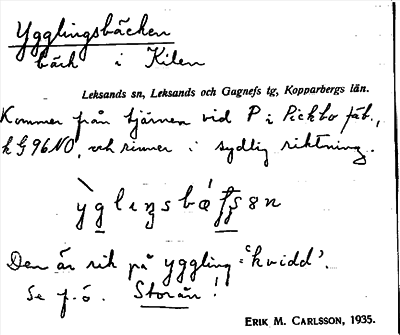 Ygglingsbäcken
bäck i Kilen
Leksands sn, Leksands och Gagnefs tg, Kopparbergs län.
Kommer från tjärnen vid P i Pickbo fäb.,
k G 96 NO, och rinner i sydlig riktning.
Den är rik på yggling = 'kvidd'.
Se f.ö. Storån!
ERIK M. CARLSSON, 1935.